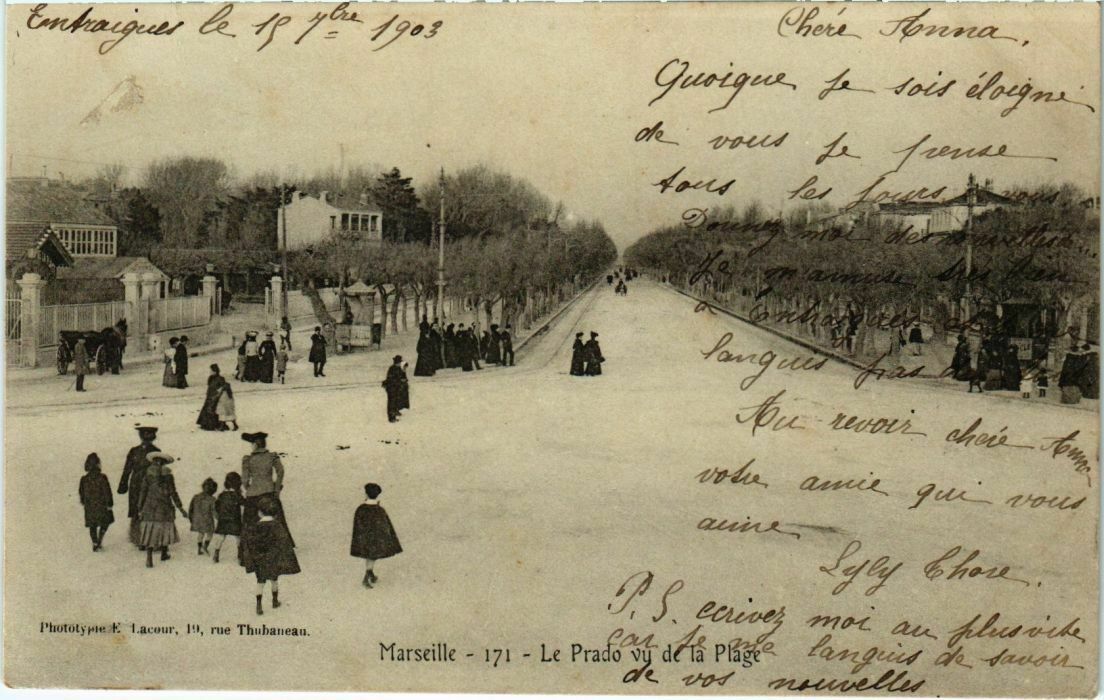 Entraigues le 15 7bre 1903
Chère Anna,
Quoique je sois éloigné
de vous je pense
tous les jours à vous
Donnez moi des nouvelles.
Je m'amuse très bien
à Entraigues et je ne
languis pas
Au revoir chère Anna
votre amie qui vous
aime
Lyly Chore.
P.S. ecrivez moi au plus vite
car je me languis de savoir
de vos nouvelles
Phototypie E. Lacour, 19, rue Thubaneau.
Marseille - 171 - Le Prado vu de la Plage